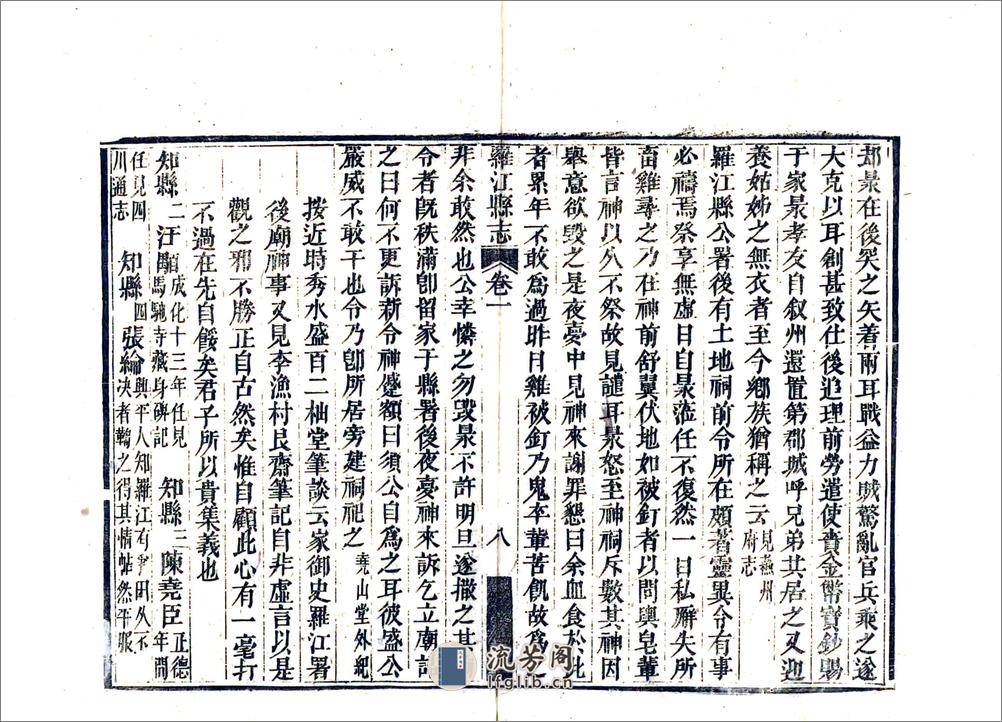 却杲在後㷀之矢着兩耳戰益力賊驚亂官兵乘之遂
大克以耳創甚致仕後追理前勞遣使賫金幣寳鈔賜
于家杲孝友自叙州還置第郡城呼兄弟共居之又迎
養姑姊之無衣者至今鄉族猶稱之云見燕州府志
羅江縣公署後有土地祠前令所在頗著靈異令有事
必禱焉祭享無虛日自杲蒞任不復然一日私廨失所
畜雞尋之乃在神前舒翼伏地如被釘者以問輿皂輩
皆言神以久不祭故見譴耳杲怒至神祠斥數其神因
舉意欲毀之是夜夢中見神來謝罪懇曰余血食於此
者累年不敢爲過昨日雞被釘乃鬼卒輩苦飢故爲
羅江縣志 卷一 八
非余敢然也公幸憐之勿毀杲不許明旦遂撤之其
令者旣秩滿卽留家于縣署後夜夢神來訴乞立廟記
之曰何不更訴新令神蹙額曰須公自爲之耳彼盛公
嚴威不敢干也令乃卽所居旁建祠祀之堯山堂外紀
按近時秀水盛百二柚堂筆談云家御史羅江署
後廟神事又見李漁村艮齋筆記自非虛言以是
觀之邪不勝正自古然矣惟自顧此心有一毫打
不過在先自餒矣君子所以貴集義也
知縣二汪顒成化十三年任見馬馳寺藏身碑記 知縣三陳堯臣正德年間
任見四川通志 知縣四張綸興平人知羅江有爭田久不決者鞫之得其情帖然平服
流芳阁
lfglib.cn